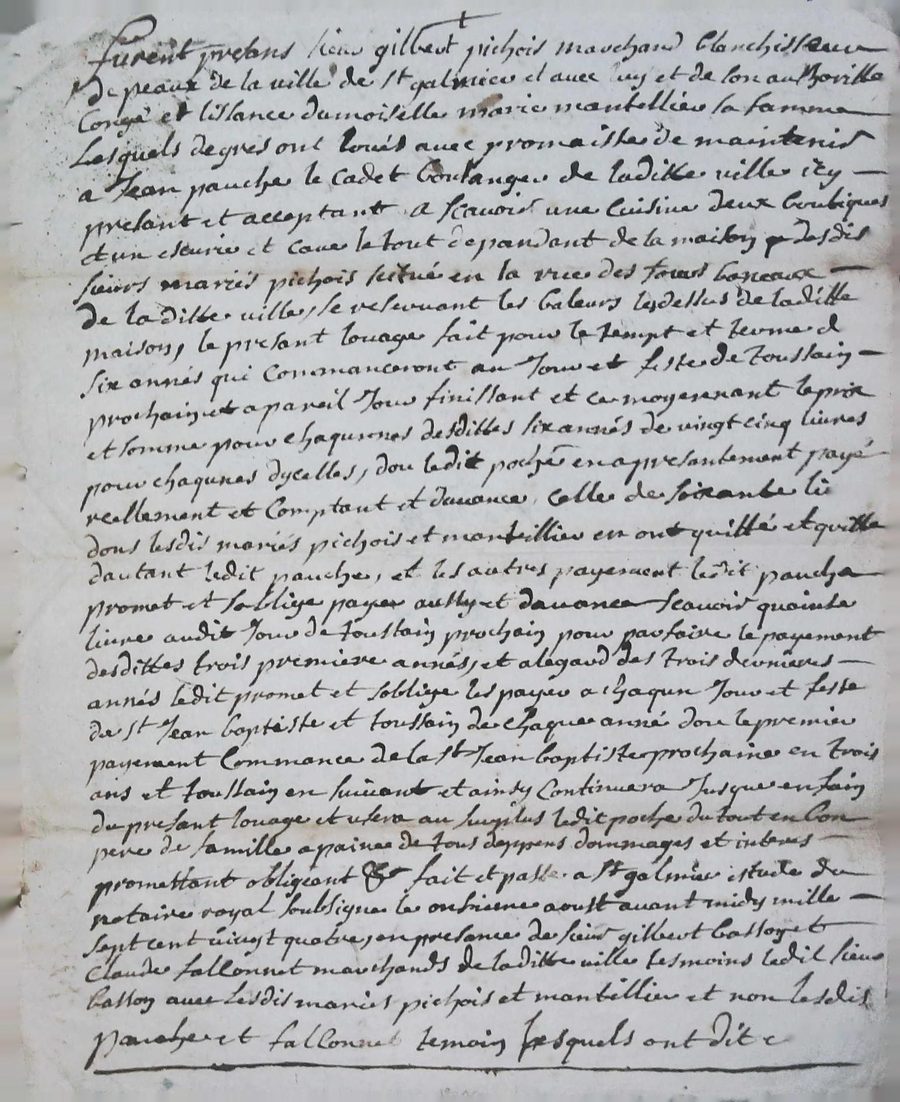 furent presans sieur gilbert pichois marchand blanchisseur
de peaux de la ville de st galmier et avec luy et de son authoritte
Congé et lisance damoiselle marie mantellier sa famme
Lesquels de gres ont loués avec promaiste de maintenir
a Jean pauche le cadet boulanger de laditte ville icy
presant et acceptant a scavoir une cuisine deux boutiques
et un escurie et cave le tout depandant de la maison desdis
sieurs mariés pichois situé en la rue des fours
de la ditte ville, se reservant les
maison, le presant louage fait pour le tempt et terme de
six annés qui commanceront au Jour et feste de toussain
prochain et a pareil Jour finissant et ce moyennant le prix
et somme pour chaqunnes desdittes six annés de vingt cinq livres
pour chaqunes dycelles, dou ledit poche en a presantement payé
reellement et comptant et davance celle de soixante li
dons lesdis mariés pichois et mantillier en ont quitté et quitte
dautant ledit pauche, et les autres payement ledit pauche
promet et soblige payer aussy et davance scavoir quainte
livre audit Jour de toussain prochain pour parfaire le payement
desdittes trois premiere annés, et a legard des trois dernieres
annés ledit promet et soblige les payer a chaqun Jour et feste
de st Jean baptiste et toussain de chaque anné dou le premier
payement commance de la st Jean baptiste prochaine en trois
ans et toussain en suivant et ainsy continuera Jusque en fain
du presant louage et usera au surplus ledit poche du tout en bon
pere de famille a paine de tous deppens dommages et interes
promettant obligeant &c fait et passe a st galmier estude du
notaire royal soubsigne le onsieme aoust avant midy mille
sept cent vingt quatre, en presance de sieur gilbert basson et
Claude fallonnet marchands de laditte ville tesmoins ledit sieur
basson avec lesdis mariés pichois et mantillier et non lesdis
pauche et fallonnet temoin lesquels ont dit